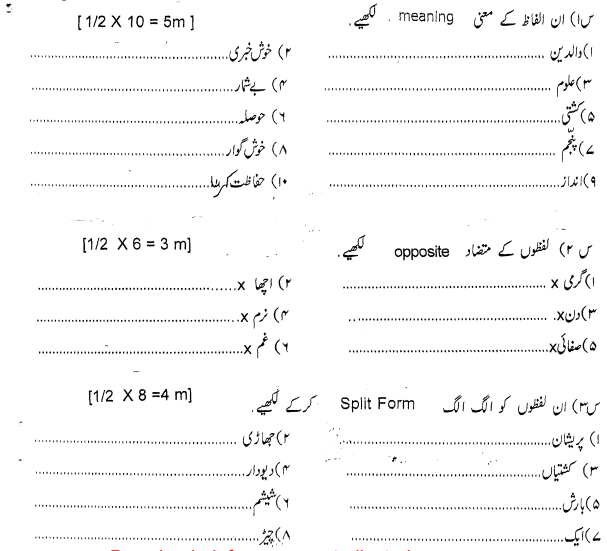 س۱) ان الفاظ کے معنی meaning لکھیے۔ [ 1/2 X 10 = 5m ]
۱) والدین ........................ ۲) خوش خبری ........................
۳) علوم ........................ ۴) بے شمار ........................
۵) کشتی ........................ ۶) حوصلہ ........................
۷) پنجم ........................ ۸) خوش گوار ........................
۹) انداز ........................ ۱۰) حفاظت کرنا ........................
س ۲) لفظوں کے متضاد opposite لکھیے۔ [1/2 X 6 = 3 m]
۱) گرمی x ........................ ۲) اچھا x ........................
۳) دن x ........................ ۴) نرم x ........................
۵) صفائی x ........................ ۶) غم x ........................
س۳) ان لفظوں کو الگ الگ Split Form کرکے لکھیے۔ [1/2 X 8 =4 m]
۱) پریشان ........................ ۲) جھاڑی ........................
۳) کشتیاں ........................ ۴) دیودار ........................
۵) بارش ........................ ۶) شیشم ........................
۷) ایک ........................ ۸) چیڑ ........................